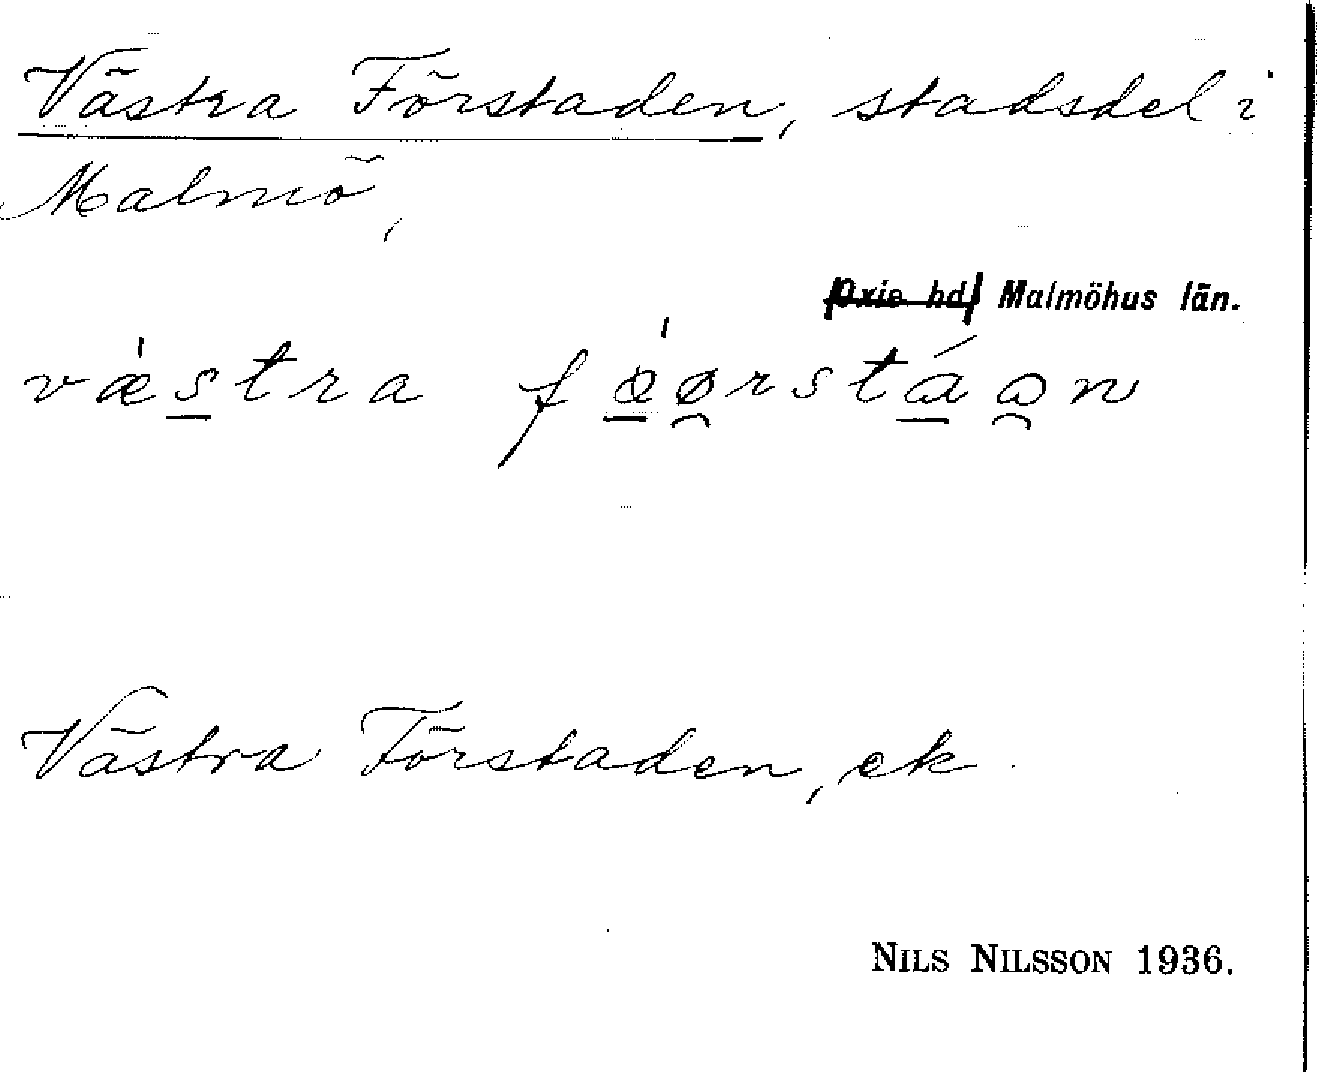 Västra Förstaden, stadsdel i
Malmö,
Oxie hd Malmöhus län.
Västra Förstaden, ek.
NILS NILSSON 1936.